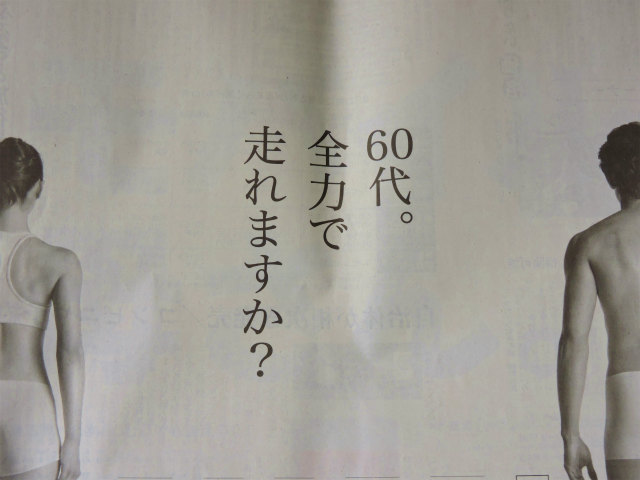 60代。
全力で
走れますか？